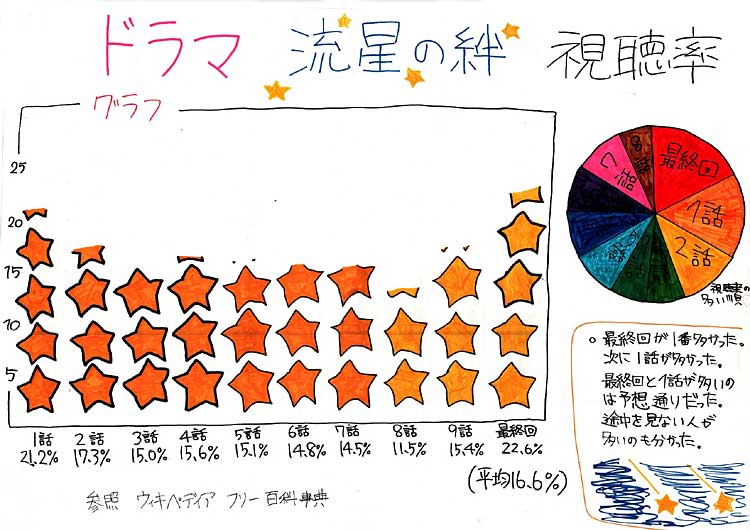 ドラマ 流星の絆 視聴率
グラフ
25
20
15
10
5
1話 2話 3話 4話 5話 6話 7話 8話 9話 最終回
21.2% 17.3% 15.0% 15.6% 15.1% 14.8% 14.5% 11.5% 15.4% 22.6%
(平均16.6%)
参照 ウィキペディア フリー百科事典
最終回
1話
2話
7話
8話
視聴率の
多い順
○最終回が1番多かった。
次に1話が多かった。
最終回と1話が多いの
は予想通りだった。
途中を見ない人が
多いのも分かった。